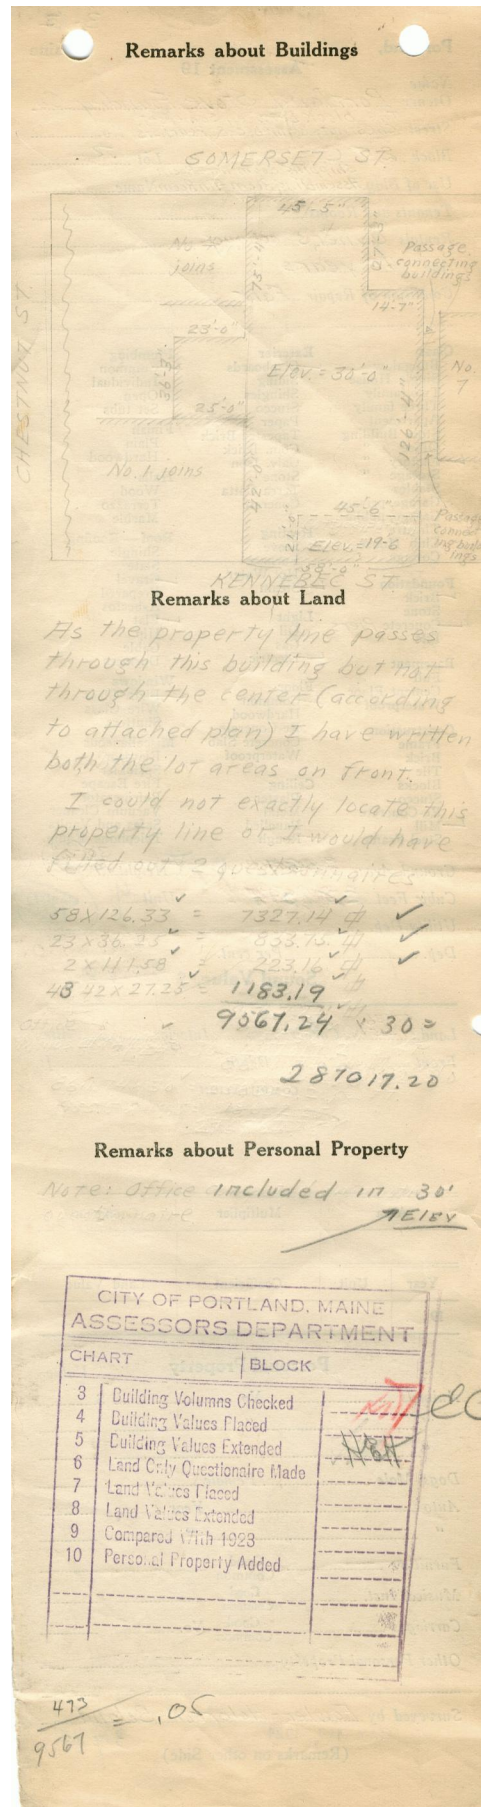 Remarks about Buildings
SOMERSET ST.
45'-5"
27'-3"
75'-4"
Passage
connecting
buildings
joins
14'-7"
23'-0"
No.
7
36'-3"
Elev. = 30'-0"
CHESTNUT ST.
25'-0"
126'-4"
No. 1 joins
42'-0"
45'-6"
21'-0"
Elev. = 19-6
Passage
connect-
ing build-
ings
58'-0"
KENNEBEC ST.
Remarks about Land
As the property line passes
through this building but not
through the center (according
to attached plan) I have written
both the lot areas on front.
I could not exactly locate this
property line or I would have
filled out 2 questionnaires
58 x 126.33 = 7327.14
23 x 36.25 = 833.75
2 x 111.58 = 223.16
43 42 x 27.25 = 1183.19
9567.24 x 30 =
287017.20
Remarks about Personal Property
Note: Office included in 30'
Elev
CITY OF PORTLAND, MAINE
ASSESSORS DEPARTMENT
CHART BLOCK
3 Building Volumns Checked
4 Building Values Placed
5 Building Values Extended
6 Land Only Questionaire Made
7 Land Values Placed
8 Land Values Extended
9 Compared With 1923
10 Personal Property Added
473
9567 = .05